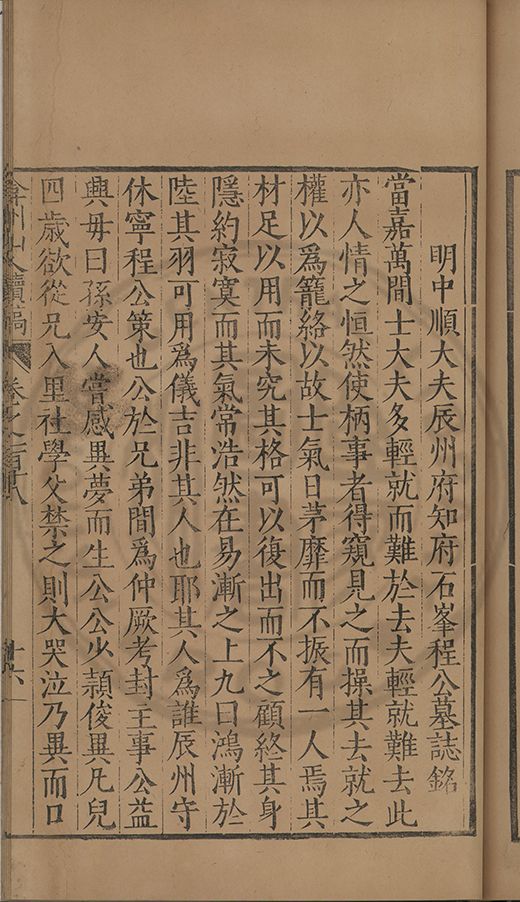 明中順大夫辰州府知府石峯程公墓誌銘
當嘉萬間士大夫多輕就而難於去夫輕就難去此
亦人情之恒然使柄事者得窺見之而操其去就之
權以爲籠絡以故士氣日茅靡而不振有一人焉其
材足以用而未究其格可以復出而不之顧終其身
隱約寂寞而其氣常浩然在易漸之上九曰鴻漸於
陸其羽可用爲儀吉非其人也耶其人爲誰辰州守
休寧程公策也公於兄弟間爲仲厥考封主事公益
興毋曰孫安人嘗感異夢而生公公少頴俊異凡兒
四歲欲從兄入里社學父禁之則大哭泣乃異而口
弇州山人續稿 卷之一百十八 十六